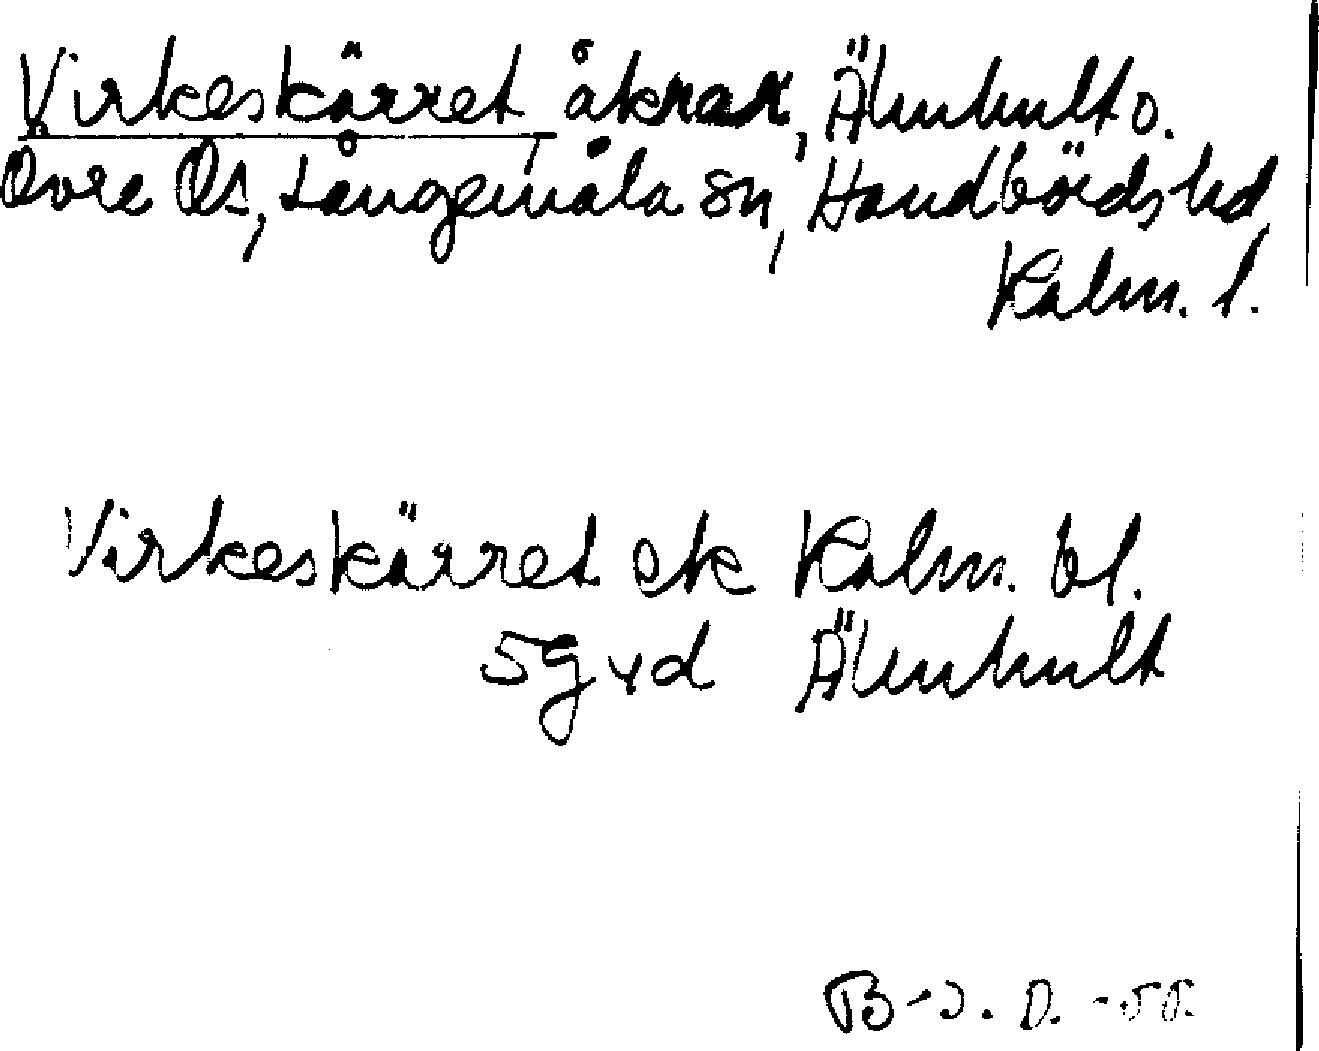 Virkeskärret, åkrar, Älmhult o.
Övre Ås, Långemåla sn, Handbörds hd,
Kalm. l.
Virkeskärret ek Kalm. bl.
5g vd Älmhult
B-J. D. -55.